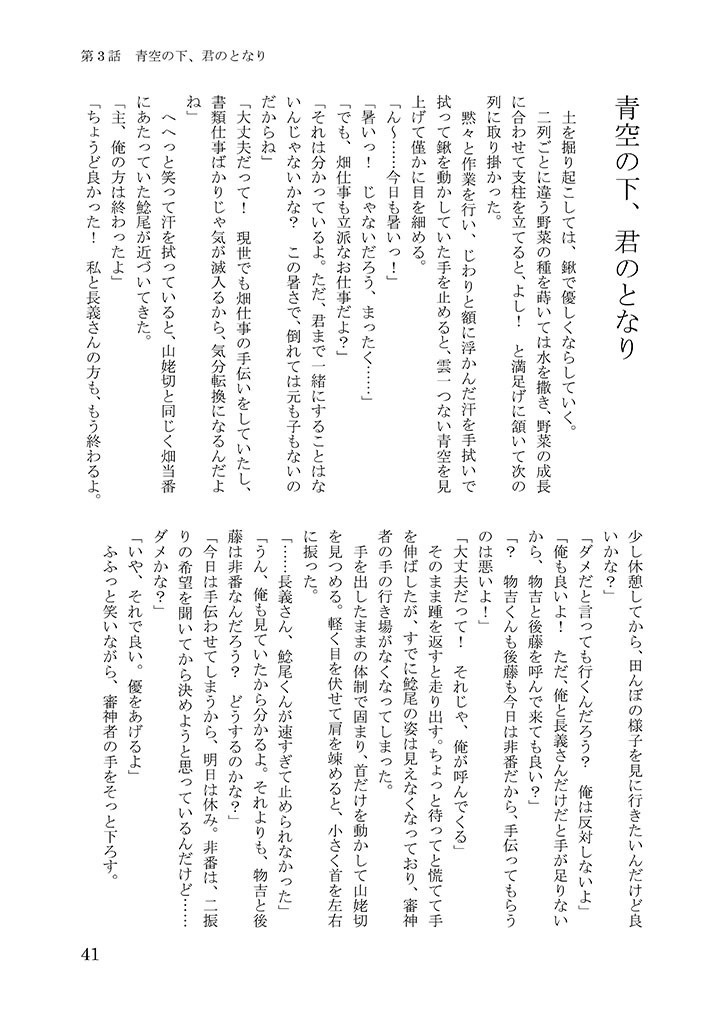 第3話　青空の下、君のとなり
青空の下、君のとなり
　土を掘り起こしては、鍬で優しくならしていく。
　二列ごとに違う野菜の種を蒔いては水を撒き、野菜の成長
に合わせて支柱を立てると、よし！　と満足げに頷いて次の
列に取り掛かった。
　黙々と作業を行い、じわりと額に浮かんだ汗を手拭いで
拭って鍬を動かしていた手を止めると、雲一つない青空を見
上げて僅かに目を細める。
「ん～……今日も暑いっ！」
「暑いっ！　じゃないだろう、まったく……」
「でも、畑仕事も立派なお仕事だよ？」
「それは分かっているよ。ただ、君まで一緒にすることはな
いんじゃないかな？　この暑さで、倒れては元も子もないの
だからね」
「大丈夫だって！　現世でも畑仕事の手伝いをしていたし、
書類仕事ばかりじゃ気が滅入るから、気分転換になるんだよ
ね」
　へへっと笑って汗を拭っていると、山姥切と同じく畑当番
にあたっていた鯰尾が近づいてきた。
「主、俺の方は終わったよ」
「ちょうど良かった！　私と長義さんの方も、もう終わるよ。
少し休憩してから、田んぼの様子を見に行きたいんだけど良
いかな？」
「ダメだと言っても行くんだろう？　俺は反対しないよ」
「俺も良いよ！　ただ、俺と長義さんだけだと手が足りない
から、物吉と後藤を呼んで来ても良い？」
「？　物吉くんも後藤も今日は非番だから、手伝ってもらう
のは悪いよ！」
「大丈夫だって！　それじゃ、俺が呼んでくる」
　そのまま踵を返すと走り出す。ちょっと待ってと慌てて手
を伸ばしたが、すでに鯰尾の姿は見えなくなっており、審神
者の手の行き場がなくなってしまった。
　手を出したままの体制で固まり、首だけを動かして山姥切
を見つめる。軽く目を伏せて肩を竦めると、小さく首を左右
に振った。
「……長義さん、鯰尾くんが速すぎて止められなかった」
「うん、俺も見ていたから分かるよ。それよりも、物吉と後
藤は非番なんだろう？　どうするのかな？」
「今日は手伝わせてしまうから、明日は休み。非番は、二振
りの希望を聞いてから決めようと思っているんだけど……
ダメかな？」
「いや、それで良い。優をあげるよ」
　ふふっと笑いながら、審神者の手をそっと下ろす。
41